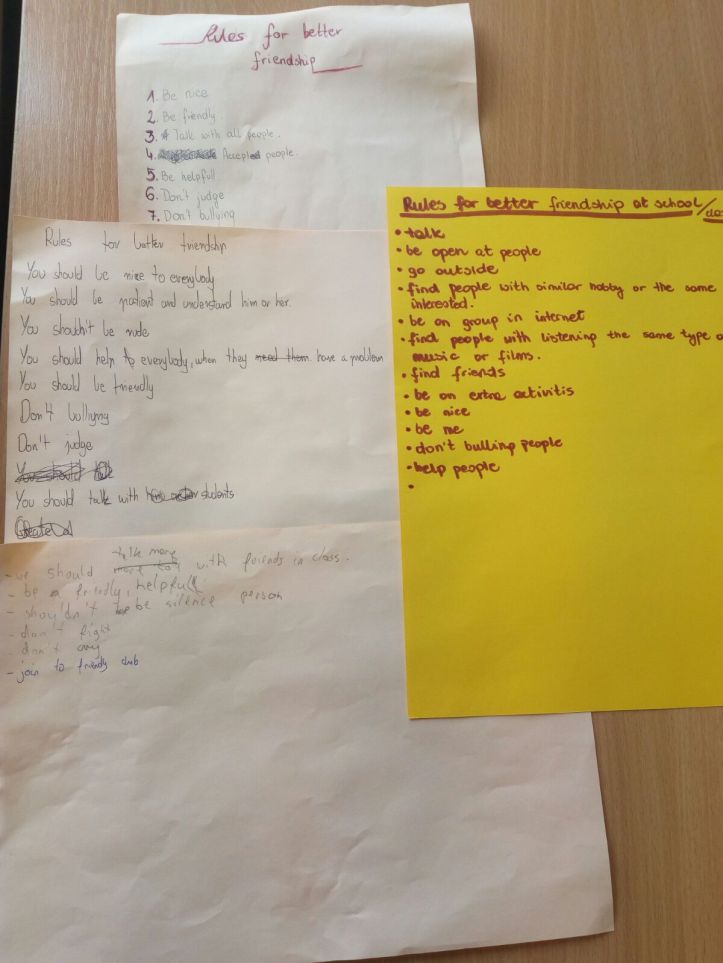 Rules for better
friendship
1. Be nice
2. Be friendly.
3. Talk with all people.
4. Accepted people.
5. Be helpfull
6. Don't judge
7. Don't bullying
Rules for better friendship
You should be nice to everybody
You should be patient and understand him or her.
You shouldn't be rude
You should help to everybody, when they need them have a problem
You should be friendly
Don't bullying
Don't judge
You should talk
You should talk with students
Create a
talk more
- we should with friends in class.
- be a friendly, helpfull
- shouldn't be silence person
- don't fight
- don't
- join to friendly club
Rules for better friendship at school/
• talk
• be open at people
• go outside
• find people with similar hobby or the same
interested.
• be on group in internet
• find people with listening the same type
music or films.
• find friends
• be on extra activitis
• be nice
• be me
• don't bulling people
• help people
•